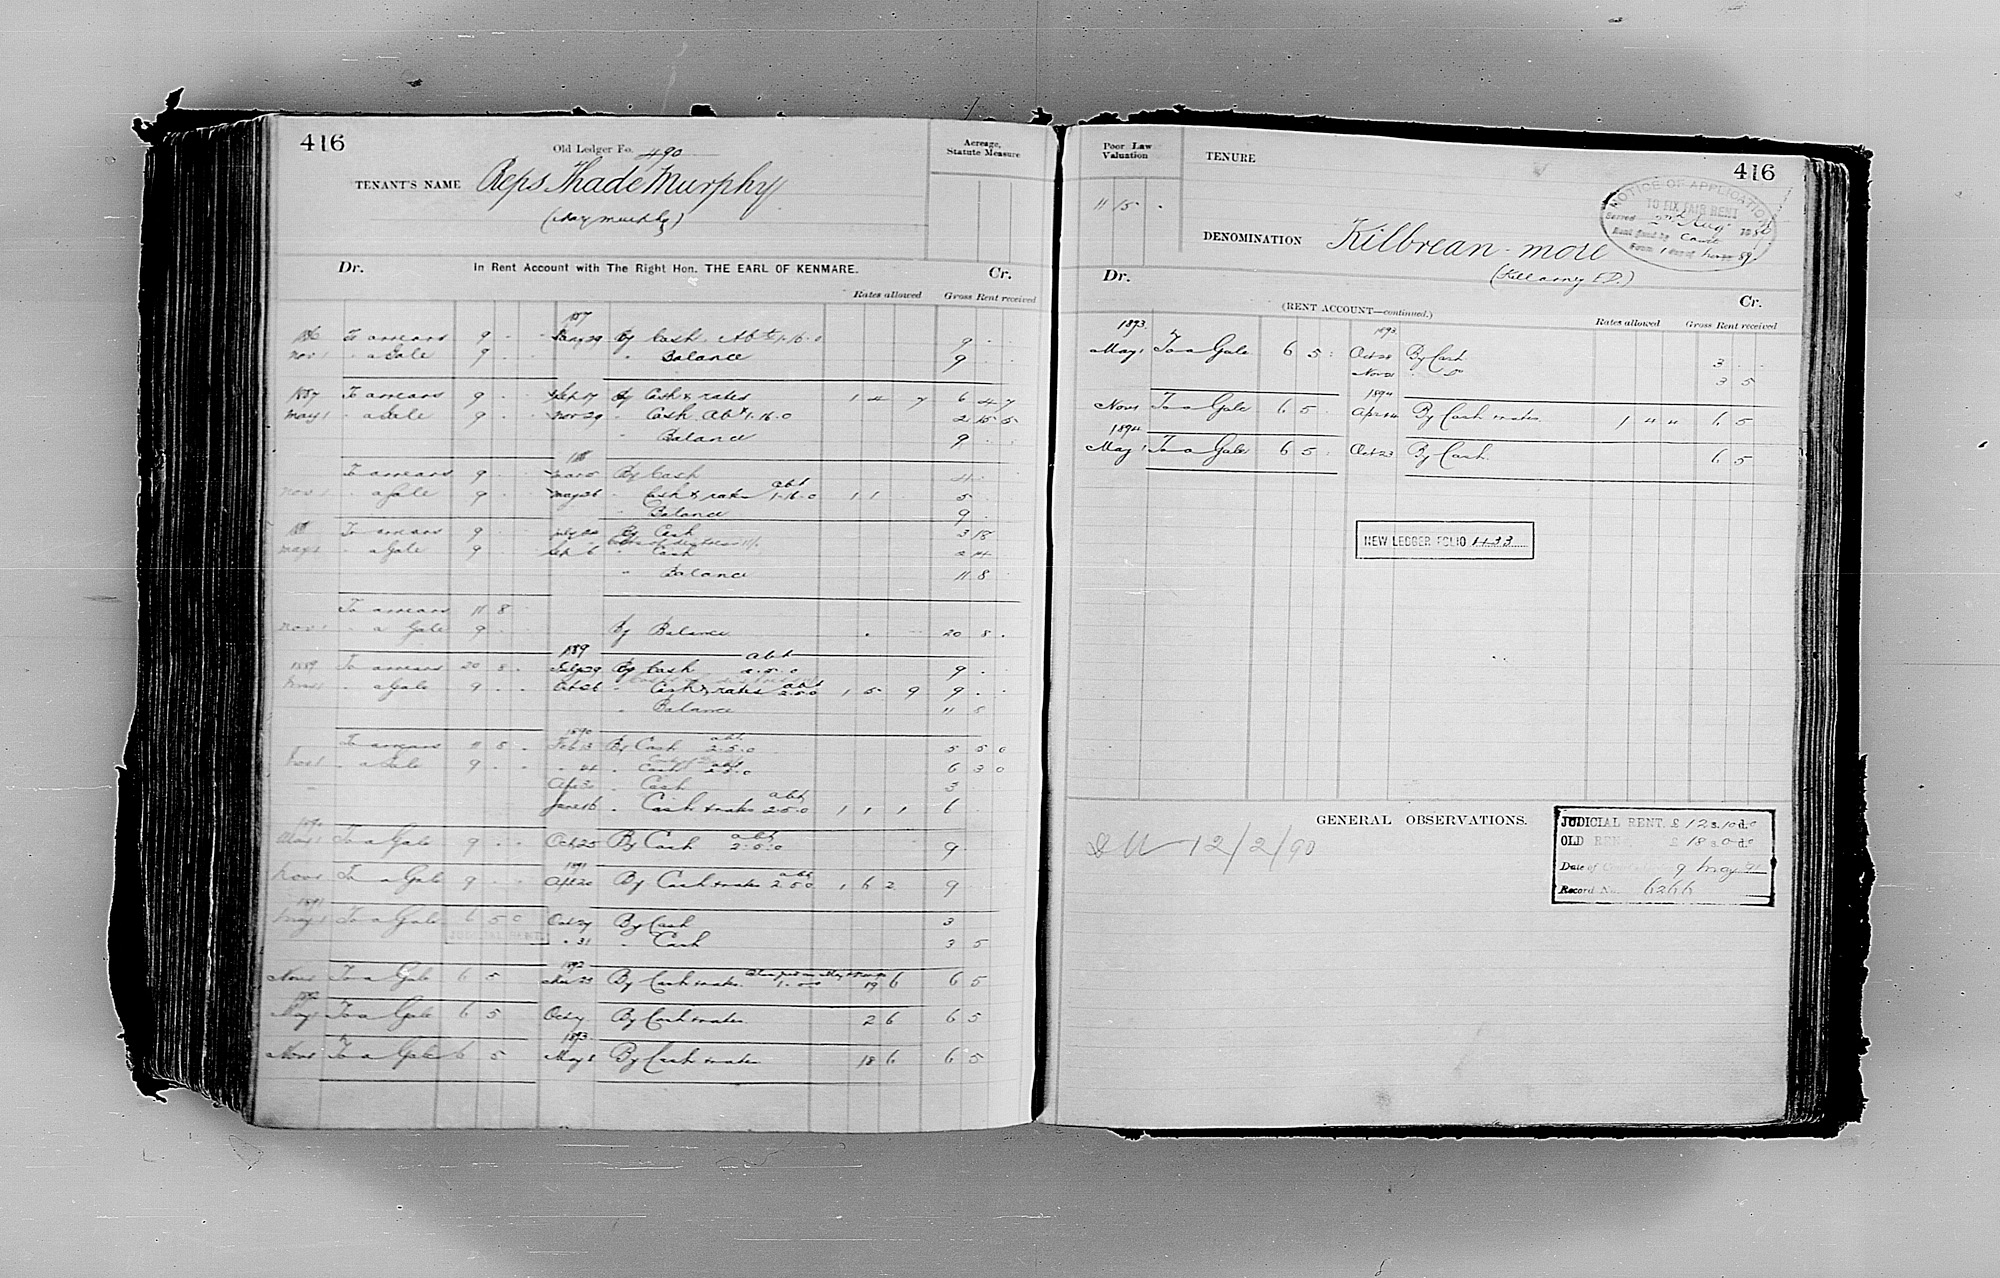 416
Old Ledger Fo. 490
Acreage,
Statute Measure
TENANT'S NAME Reps Thade Murphy
Dr. In Rent Account with The Right Hon. THE EARL OF KENMARE. Cr.
Rates allowed Gross Rent received
1887
1886 To arrears 9 . . Jany 29 By Cash Abt 1.16.0 9 . .
Nov 1 " a Gale 9 . . " Balance 9 . .
1887 To arrears 9 . . Sept 17 By Cash & rates 1 4 7 6 4 7
May 1 " a Gale 9 . . Nov 29 " Cash Abt 1.16.0 2 15 5
" Balance 9 . .
188
To arrears 9 . . By Cash 4 . .
Nov 1 " a Gale 9 . . May 26 " Cash & rates abt 1.16.0 1 1 5 . .
" Balance 9 . .
188 To arrears 9 . . July 20 By Cash 3 18
May 1 " a Gale 9 . . Sep 6 " Cash 2 14
" Balance 11 8 .
To arrears 11 8
Nov 1 " a Gale 9 . . By Balance 20 8 .
1889 abt
1889 To arrears 20 8 . July 29 By Cash 2.5.0 9 . .
" a Gale 9 . . Oct 26 " Cash & rates abt 2.5.0 1 5 9 9 . .
" Balance 11 8
1890
To arrears 11 8 . Feb 13 By Cash abt 2.5.0 5 5 0
Nov 1 " a Gale 9 . . " Cash 2.5.0 6 3 0
Apr 30 " Cash 3
June 16 " Cash & rates abt 2.5.0 1 1 1 6
1890
May 1 To a Gale 9 . . Oct 25 By Cash abt 2.0.0 9
1891
Nov 1 To a Gale 9 . . Apl 20 By Cash & rates abt 2.5.0 1 6 2 9
1891
May 1 To a Gale 6 5 0 Oct 27 By Cash 3
JUDICIAL RENT " 31 " Cash 3 5
1892
Nov 1 To a Gale 6 5 Mar 23 By Cash & rates 19 6 6 5
1892
May 1 To a Gale 6 5 Oct By Cash & rates 2 6 6 5
1893
Nov 1 To a Gale 6 5 May 8 By Cash & rates 18 6 6 5
Poor Law
Valuation
TENURE
416
11 15 .
NOTICE OF APPLICATION
TO FIX FAIR RENT
Served 2nd Aug
Rent fixed by Court
From
DENOMINATION Kilbrean more
(Killarney E.D.)
Dr. Cr.
(RENT ACCOUNT—continued.)
Rates allowed Gross Rent received
1893. 1893.
May 1 To a Gale 6 5 . Oct 28 By Cash 3 . .
Nov 21 " Do 3 5
1894
Nov 1 To a Gale 6 5 . Apr 14 By Cash & rates 1 " " 6 5
1894
May 1 To a Gale 6 5 . Oct 23 By Cash 6 5
NEW LEDGER FOLIO 1133
GENERAL OBSERVATIONS.
12/2/90
JUDICIAL RENT £ 12 s. 10 d. 0
OLD RENT £ 18 s. 0 d. 0
Date of 9 May 91
Record No. 6266